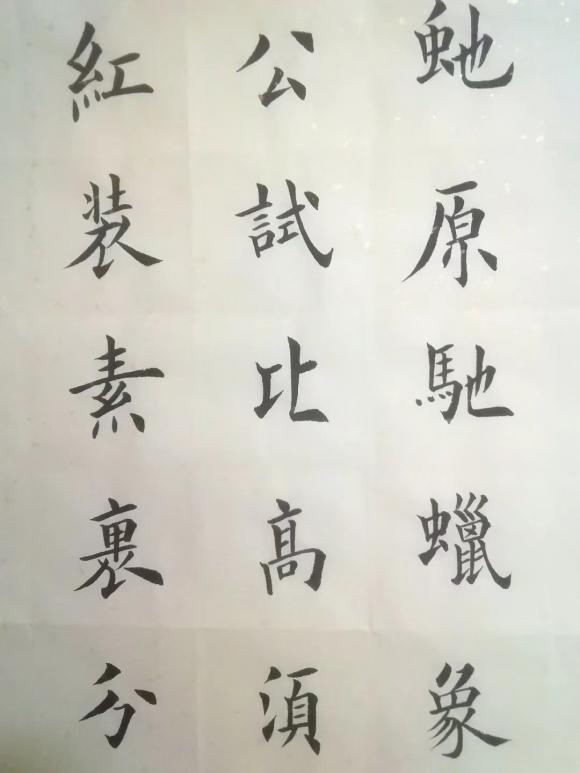 虵原馳蠟象
公試比高須
紅装素裹分